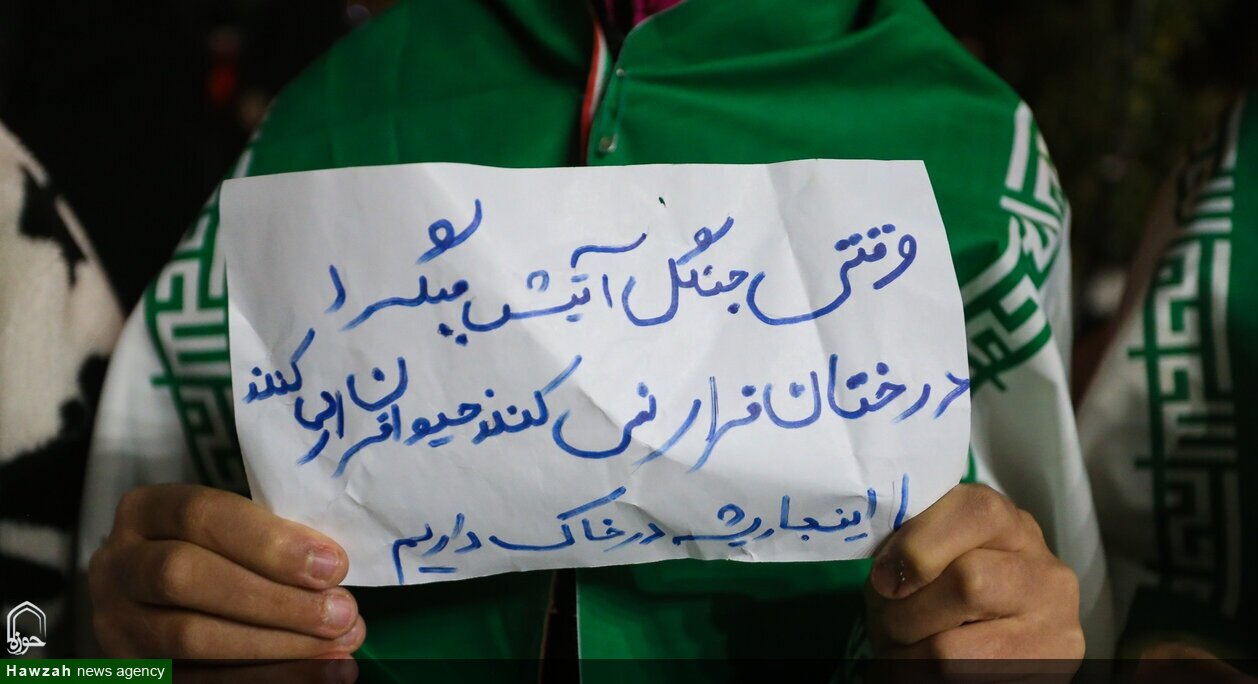 وقتی جنگل آتش میگیرد
درختان فرار نمی کنند حیوانان فرار می کنند
اینجا ریشه در خاک داریم
حوزه
Hawzah news agency